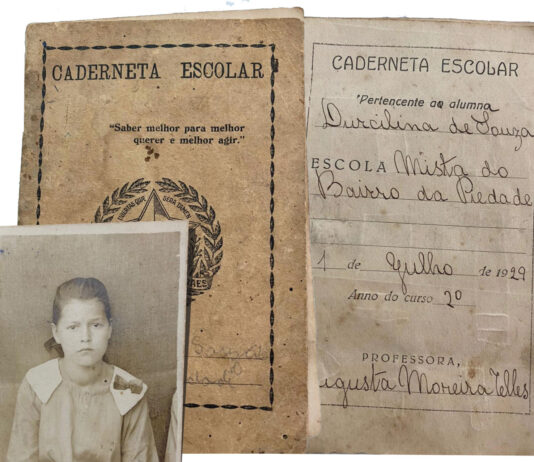 CADERNETA ESCOLAR
"Saber melhor para melhor
querer e melhor agir."
CADERNETA ESCOLAR
Pertencente ao alumna
Durcilina de Souza
ESCOLA Mista do
Bairro da Piedade
1 de Julho de 1929
Anno do curso 2º
PROFESSORA,
Augusta Moreira Telles